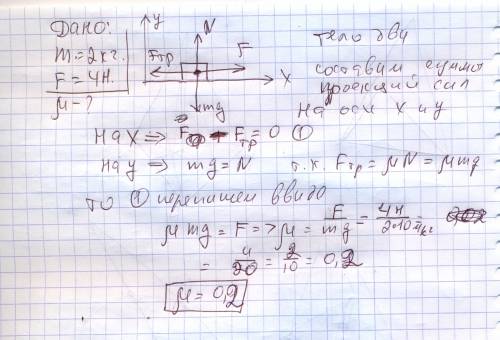 Дано:
m = 2 кг.
F = 4 Н.
μ - ?
y
N
Fтр
F
X
mg
тело дви
составим сумму
проекций сил
на оси X и y
На X => F - Fтр = 0 ①
На y => mg = N т.к. Fтр = μN = μmg
то ① перепишем в виде
μ mg = F => μ = F/mg = 4Н/2·10 =
= 4/20 = 2/10 = 0,2
μ = 0,2